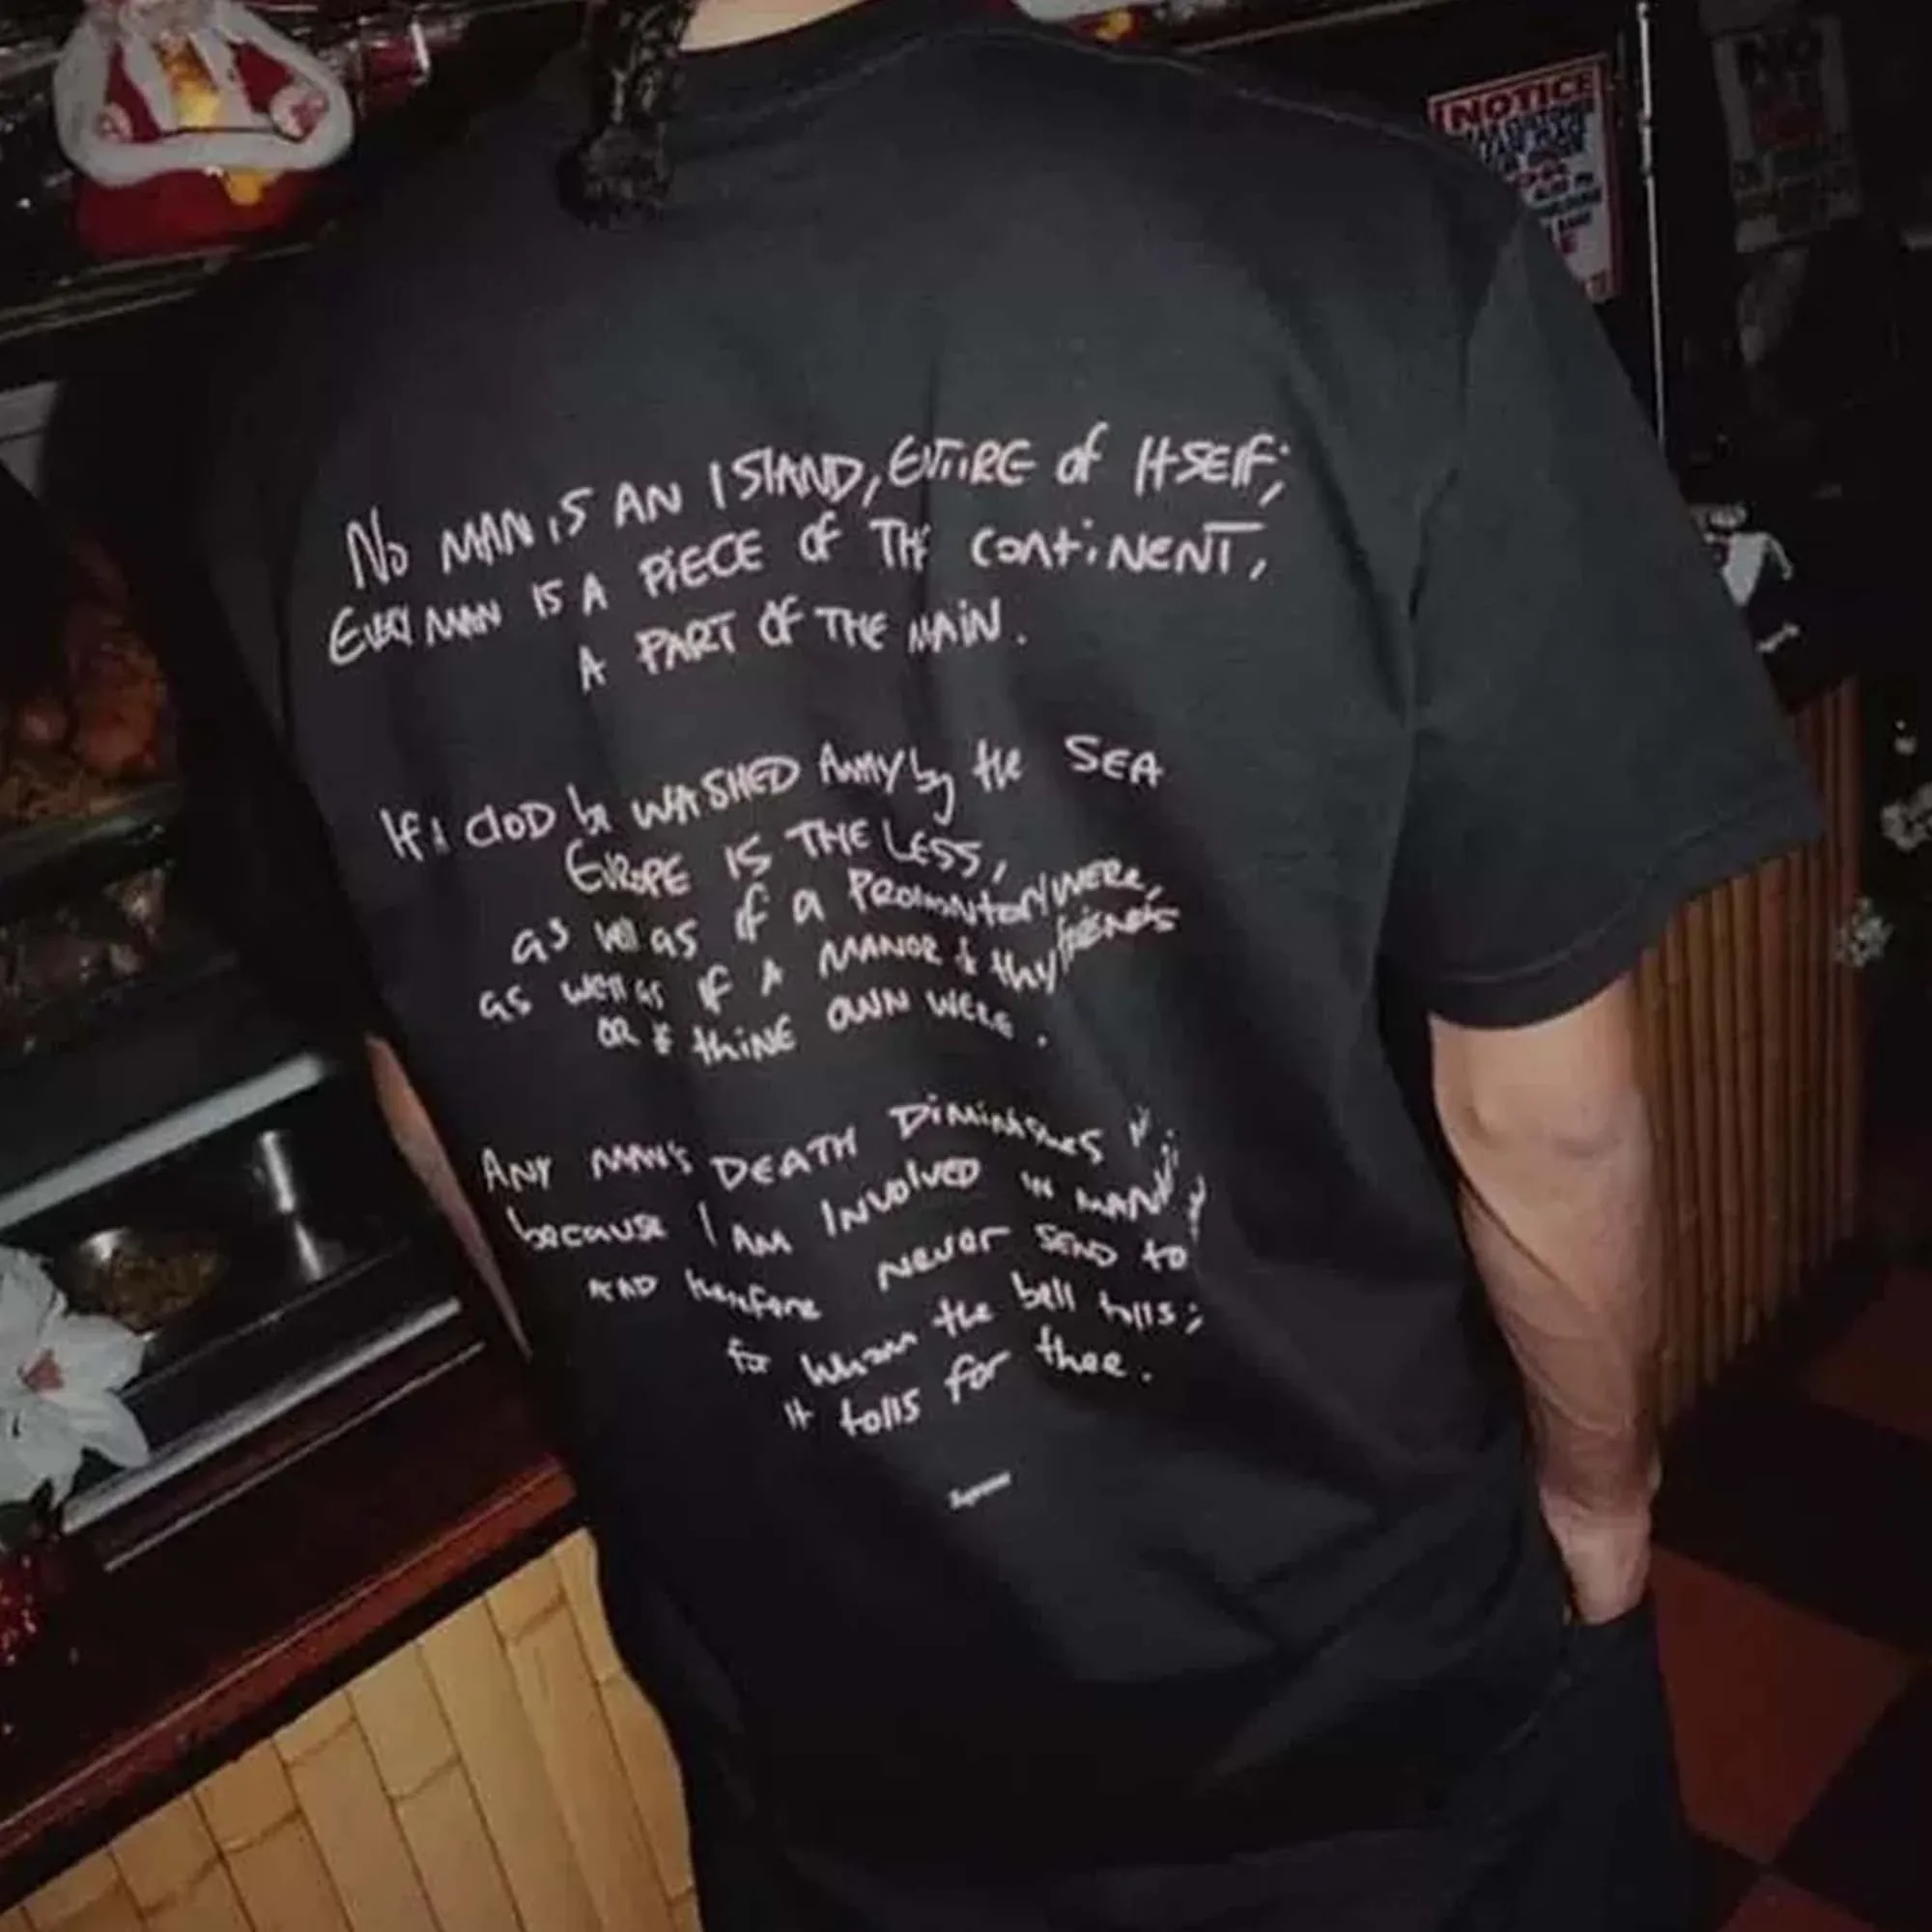 No MAN iS AN ISlAND, ENTiRE of ItSElf;
EVERY MAN IS A PiECE Of THE contiNENT,
A PART Of THE MAiN.
If a cloD be WASHED AWAY by the SEA
EUROPE IS THE LESS,
as well as if a PROMONTORY WERE,
as well as if A MANOR of thy friENDS
OR of thiNE OWN WERE.
ANY MAN'S DEATH DiMiNiSHES
because I AM INVolvED IN
AND therefore NEVER SEND to
for whom the bell tolls;
It tolls for thee.
Supreme
NOTICE
NO